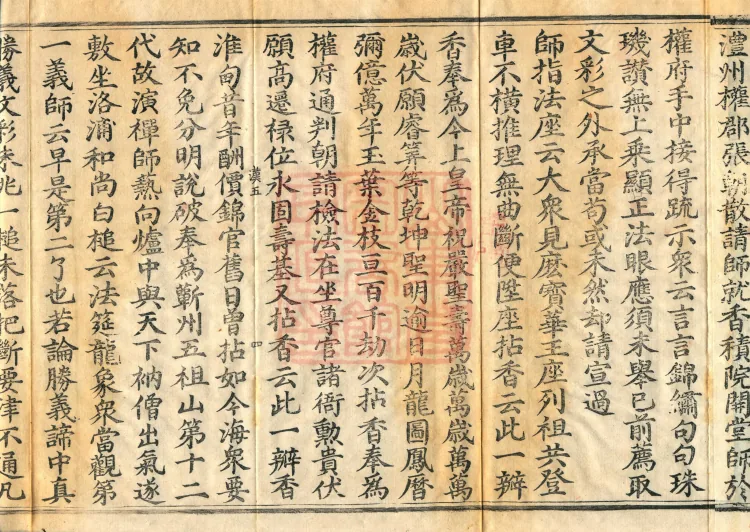 澧州權郡張朝散請師就香積院開堂師於
權府手中接得䟽示衆云言言錦繡句句珠
璣讚無上乗顯正法眼應須未舉已前薦取
文彩之外承當苟或未然却請宣過
師指法座云大衆見麽寶華王座列祖共登
車不橫推理無曲斷便陞座拈香云此一瓣
香奉爲今上皇帝祝嚴聖壽萬歳萬歳萬萬
歳伏願睿筭等乾坤聖明逾日月龍圖鳳曆
彌億萬年玉葉金枝亘百千劫次拈香奉爲
權府通判朝請檢法在坐尊官諸衙勳貴伏
願高遷禄位永固壽基又拈香云此一瓣香
漢五
四
淮甸昔年酬價錦官舊日曽拈如今海衆要
知不免分明說破奉爲蘄州五祖山第十二
代故演禪師爇向爐中與天下衲僧出氣遂
敷坐洛浦和尚白槌云法筵龍象衆當觀第
一義師云早是第二了也若論勝義諦中真
勝義文彩未兆一槌未落把斷要津不通凡